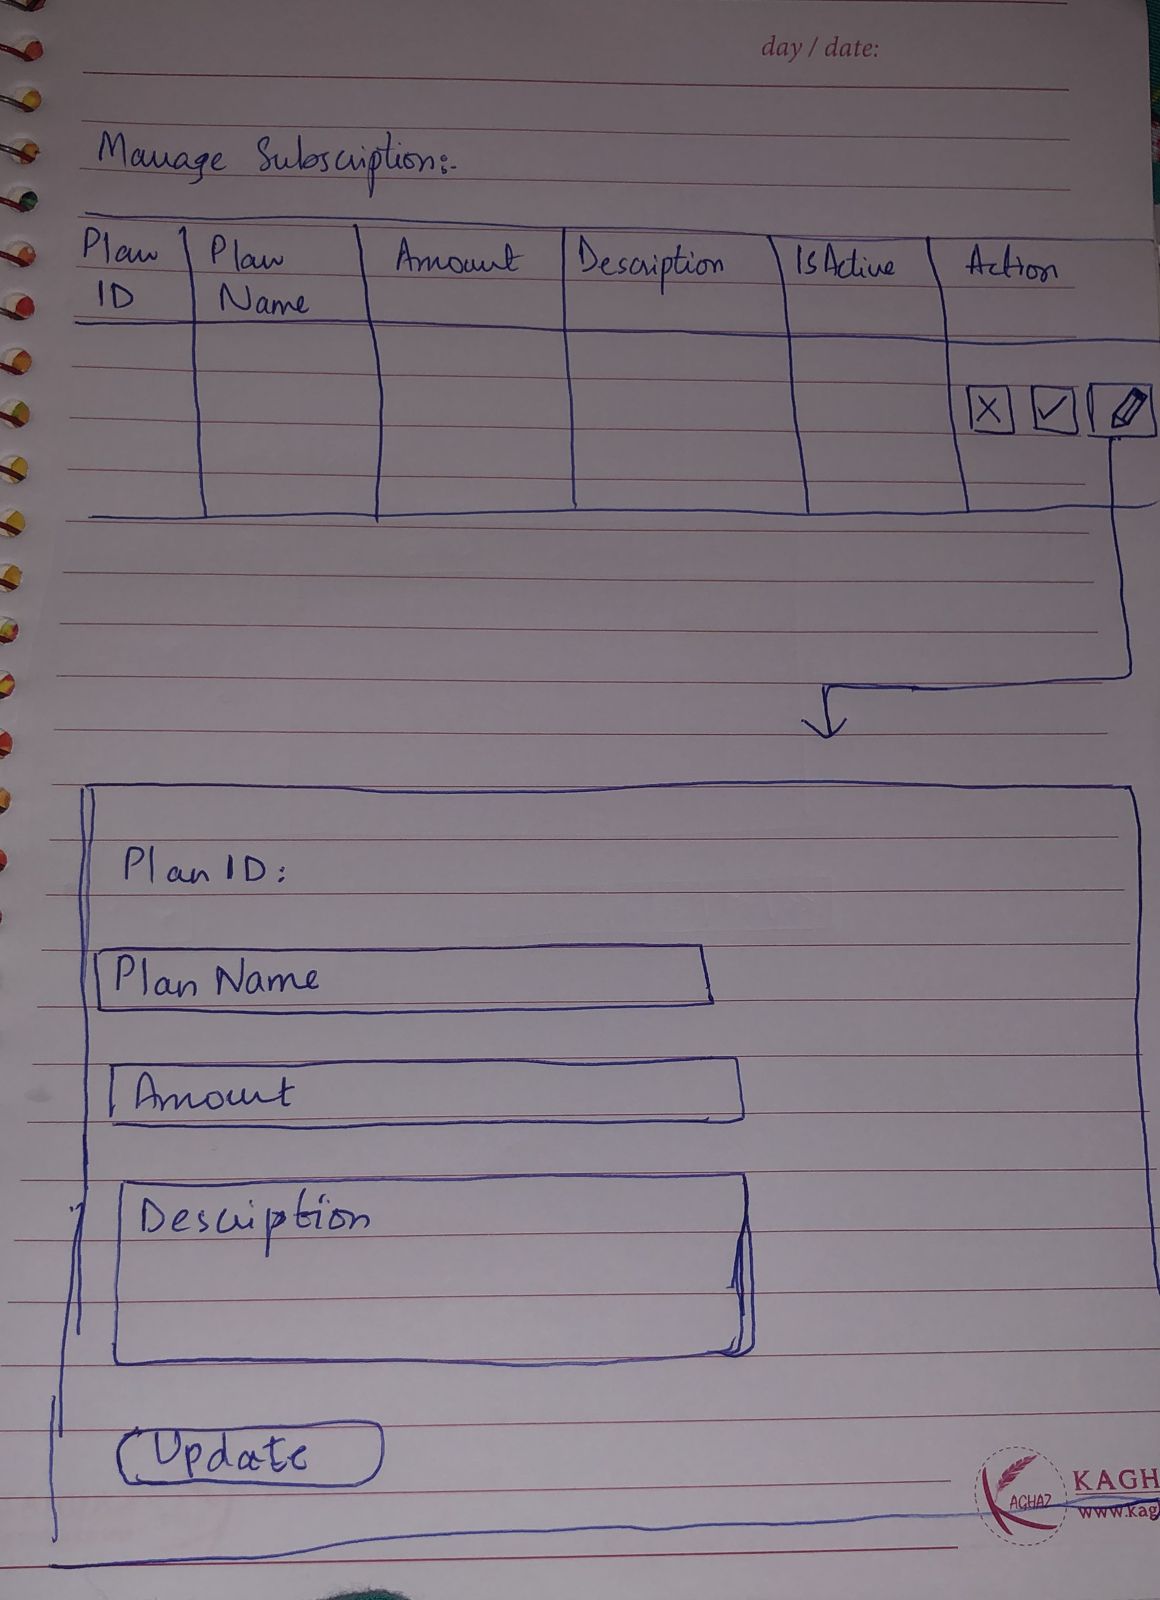 day / date:
Manage Subscription:-
Plan ID
Plan Name
Amount
Description
IsActive
Action
Plan ID:
Plan Name
Amount
Description
Update
AGHAZ
KAGH
www.kag